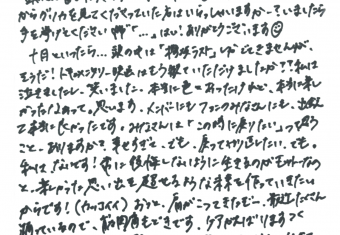 からグリカを見てくださっていた方はいらっしゃいますかー？いましたら
手を挙げてください "…" はい！ありがとうございます☺
十月といったら… 頭の中は「 」しか でてきませんが、
そうだ！ドキュメンタリー映画はもう観ていただけましたか？？私は
泣きましたし、笑いました。本当に色々あったけれど、本当に楽し
かったなぁって。思います。メンバーにもファンのみなさんにも、出会え
て本当に良かったです。みなさんは「この時に戻りたい」って思う
こと、ありますか？ 幸せすぎて、とか、戻ってやり直したい、とか。
私は、ないです！常に後悔しないように生きるのがモットーなの
と、楽しかった思い出を超せるような未来を作っていきたい
からです！（カッコイイ）おっと、肩がこってきたなー。最近たくさん
踊っているので、筋肉痛もどきです。ケアがんばりますっ